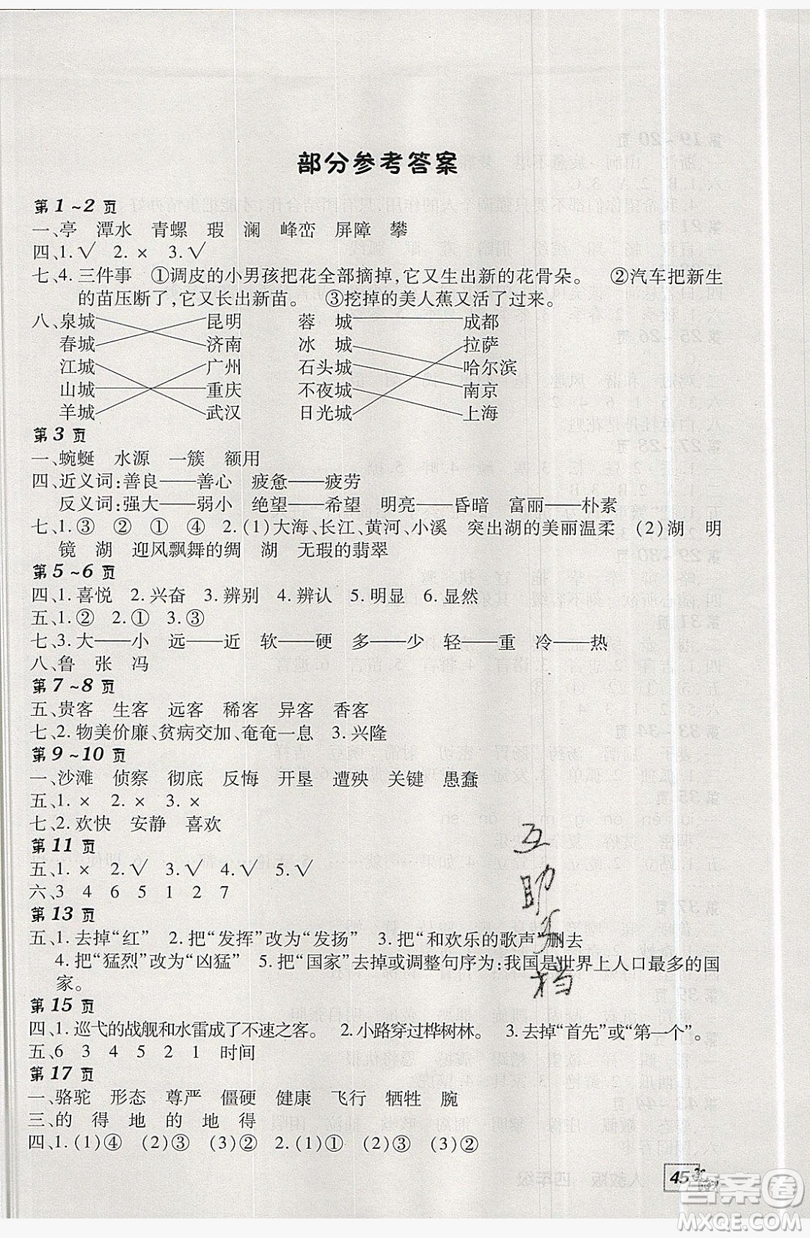 部分参考答案
第1~2页
一、亭 潭水 青螺 瑕 澜 峰峦 屏障 攀
四、1.√ 2.× 3.√
七、4.三件事 ①调皮的小男孩把花全部摘掉,它又生出新的花骨朵。 ②汽车把新生
的苗压断了,它又长出新苗。 ③挖掉的美人蕉又活了过来。
八、泉城 昆明 蓉城 成都
春城 济南 冰城 拉萨
江城 广州 石头城 哈尔滨
山城 重庆 不夜城 南京
羊城 武汉 日光城 上海
第3页
一、蜿蜒 水源 一簇 额用
四、近义词:善良——善心 疲惫——疲劳
反义词:强大——弱小 绝望——希望 明亮——昏暗 富丽——朴素
七、1.③ ② ④ ① 2.(1)大海、长江、黄河、小溪 突出湖的美丽温柔 (2)湖 明
镜 湖 迎风飘舞的绸 湖 无瑕的翡翠
第5~6页
四、1.喜悦 2.兴奋 3.辨别 4.辨认 5.明显 6.显然
五、1.② 2.① 3.③
七、3.大——小 远——近 软——硬 多——少 轻——重 冷——热
八、鲁 张 冯
第7~8页
五、贵客 生客 远客 稀客 异客 香客
七、2.物美价廉、贫病交加、奄奄一息 3.兴隆
第9~10页
一、沙滩 侦察 彻底 反悔 开垦 遭殃 关键 愚蠢
五、1.× 2.× 3.× 4.√
七、2.欢快 安静 喜欢
第11页
五、1.× 2.√ 3.√ 4.√ 5.√
六、3 4 6 5 1 2 7
第13页
五、1.去掉“红” 2.把“发挥”改为“发扬” 3.把“和欢乐的歌声”删去
4.把“猛烈”改为“凶猛” 5.把“国家”去掉或调整句序为:我国是世界上人口最多的国
家。
第15页
四、1.巡弋的战舰和水雷成了不速之客。 2.小路穿过桦树林。 3.去掉“首先”或“第一个”。
五、6 3 4 5 2 1 时间
第17页
一、骆驼 形态 尊严 僵硬 健康 飞行 牺牲 腕
三、的 得 地 的 地 得
四、1.(1)④ (2)③ (3)① (4)② 2.(1)③ (2)② (3)①
互助文档
45
答案圈
MXQE.COM